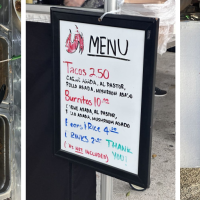 MENU
Tacos 2.50
CARNE ASADA, AL PASTOR,
POLLO ASADA, MUSHROOM ASADA
Burritos 10.00
ASADA, AL PASTOR,
ASADA, MUSHROOM ASADO
Beans | Rice 4.00
DRINKS 2.00 THANK
TAX INCLUDED YOU!